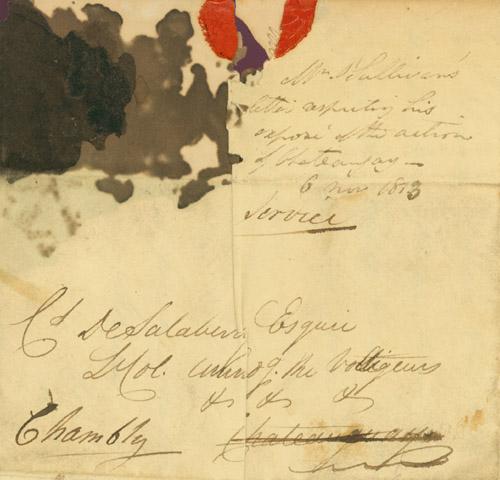 Mr O'Sullivan's
letter respecting his
exposé of the action
of Chateaugay —
6 nov 1813
Service
Cs DeSalaberry Esquire
Lt Col. commdg. the Voltigeurs
& & &
Chambly Chateauguay